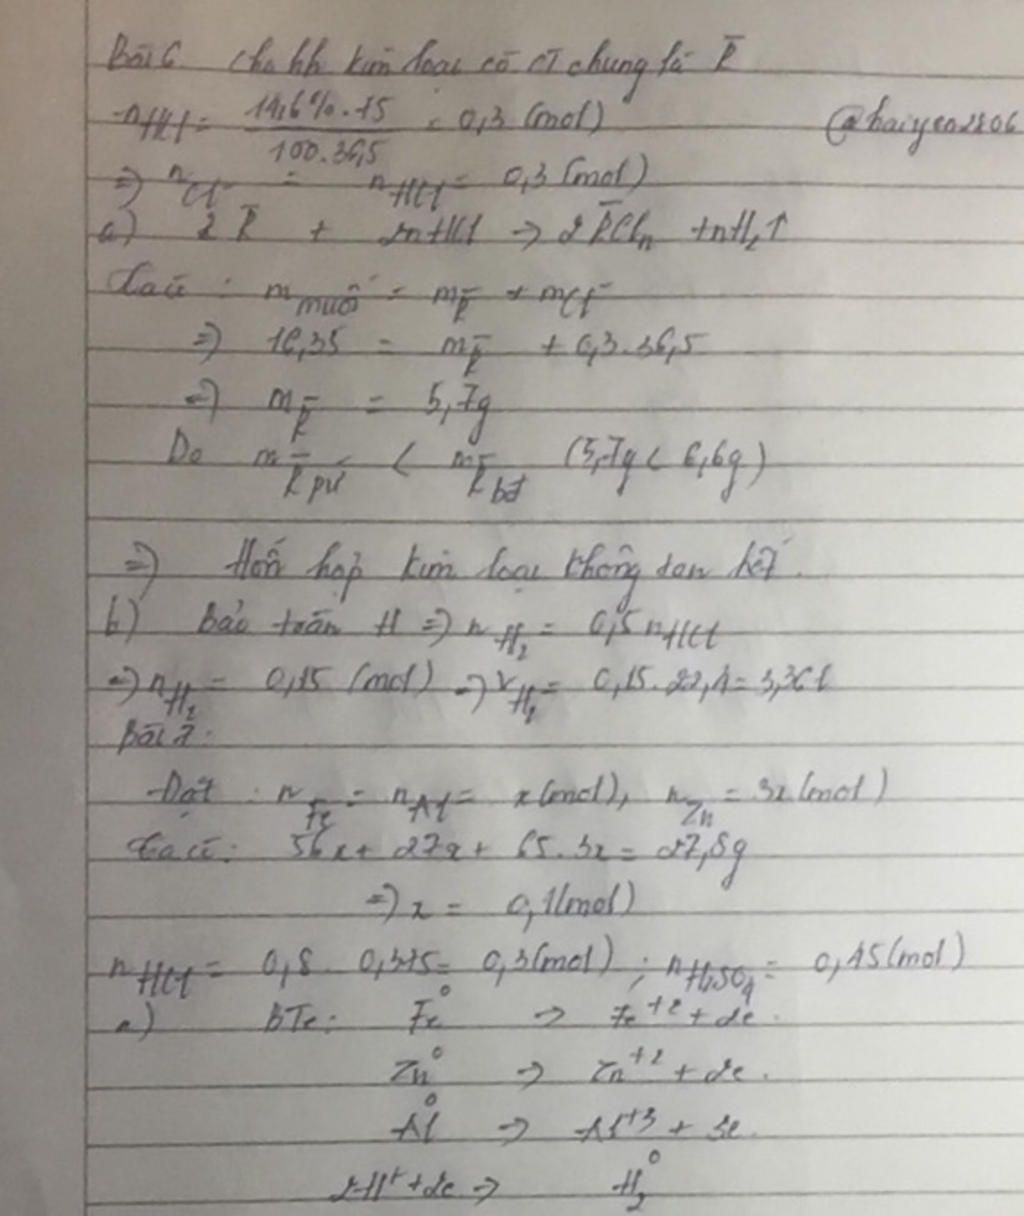 Bài 6. Cho hh kim loại có CT chung là R̄
nHCl = 14,6%.75 / 100.36,5 = 0,3 (mol)
@haiyen2806
=> nCl⁻ = nHCl = 0,3 (mol)
a) 2R̄ + 2nHCl → 2R̄Cln + nH₂↑
Ta có: m muối = mR̄ + mCl⁻
=> 16,35 = mR̄ + 0,3.36,5
=> mR̄ = 5,7g
Do mR̄ pứ < mR̄ bđ (5,7g < 6,6g)
=> Hỗn hợp kim loại không tan hết.
b) Bảo toàn H => nH₂ = 0,5nHCl
=> nH₂ = 0,15 (mol) => VH₂ = 0,15.22,4 = 3,36l
Bài 7:
Đặt: nFe = nAl = x(mol), nZn = 3x(mol)
Ta có: 56x + 27x + 65.3x = 27,8g
=> x = 0,1(mol)
nHCl = 0,8.0,375 = 0,3(mol); nH₂SO₄ = 0,45(mol)
a) BTe: Fe⁰ → Fe⁺² + 2e.
Zn⁰ → Zn⁺² + 2e.
Al⁰ → Al⁺³ + 3e.
2H⁺ + 2e → H₂⁰